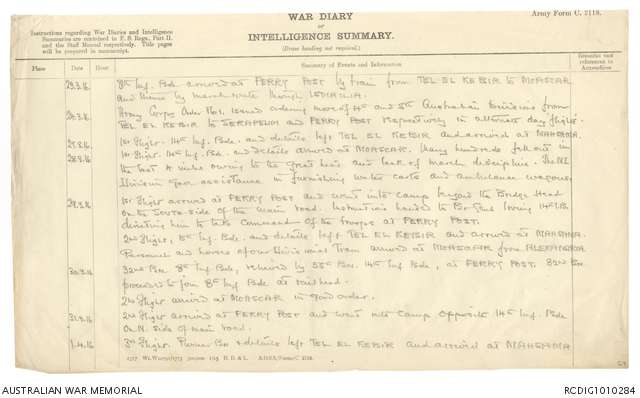 Army Form C. 2118.
WAR DIARY
or
INTELLIGENCE SUMMARY.
(Erase heading not required.)
Instructions regarding War Diaries and Intelligence
Summaries are contained in F. S. Regs., Part II.
and the Staff Manual respectively. Title pages
will be prepared in manuscript.
Place Date Hour Summary of Events and Information Remarks and references to Appendices
25.3.16. 8th Inf. Bde arrived at FERRY POST by train from TEL EL KEBIR to MOASCAR
and thence by march route through ISMAILIA.
26.3.16. Army Corps Order No. issued ordering move of 4th and 5th Australian Divisions from
TEL EL KEBIR to SERAPEUM and FERRY POST respectively in alternate day flights.
27.3.16 1st Flight. 14th Inf. Bde. and details left TEL EL KEBIR and arrived at MAHSAMA.
28.3.16. 1st Flight. 14th Inf. Bde. and details arrived at MOASCAR. Many hundreds fell out in
the last 4 miles owing to the great heat and lack of march discipline. The N.Z.
Division gave assistance in furnishing water carts and ambulance wagons.
29.3.16 1st Flight arrived at FERRY POST and went into camp beyond the Bridge Head
on the South side of the main road. Instruction handed to Br. Gen. Irving 14th I.B.
directing him to take Command of the troops at FERRY POST.
2nd Flight, 15th Inf. Bde. and details left TEL EL KEBIR and arrived at MAHSAMA.
Personnel and horses of our Divisional Train arrived at MOASCAR from ALEXANDRIA
30.3.16 32nd Bn. 8th Inf. Bde, relieved by 55th Bn. 14th Inf. Bde, at FERRY POST. 32nd Bn
proceeded to join 8th Inf. Bde at railhead.
2nd Flight arrived at MOASCAR in good order.
31.3.16 2nd Flight arrived at FERRY POST and went into camp opposite 14th Inf. Bde
on N. side of main road.
1.4.16 3rd Flight. Pioneer Bn & details left TEL EL KEBIR and arrived at MAHSAMA
AUSTRALIAN WAR MEMORIAL
RCDIG1010284